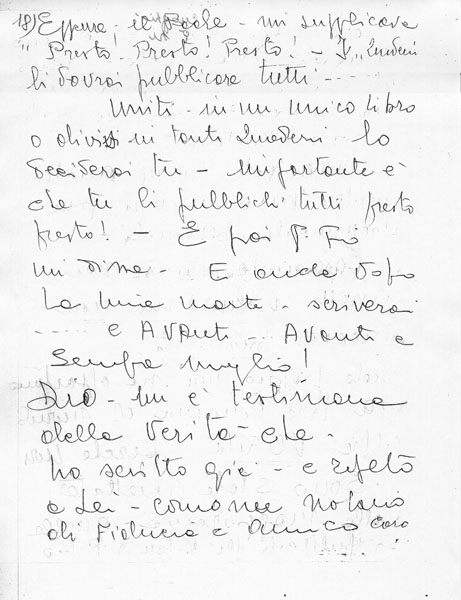 18) Eppure - il Padre - mi supplicava
"Presto! Presto! Presto! - I „ Quaderni
li dovrai pubblicare tutti ----
Uniti - in un unico libro
o divisi in tanti Quaderni lo
deciderai tu - importante è
che tu li pubblichi tutti presto
presto! - E poi P.
mi disse - E anche dopo
la mia morte - scriverai
---- e Avanti - Avanti e
Sempre meglio!
Dio - mi è testimone
della Verità - che -
ho scritto qui - e ripeto
a Lei - come mio Notaio
di Fiducia e Amico caro